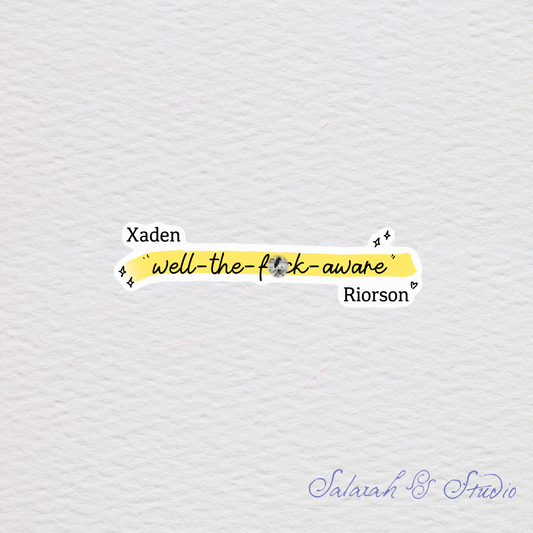 Xaden
"well-the-f ck-aware"
Riorson
Salarah S Studio